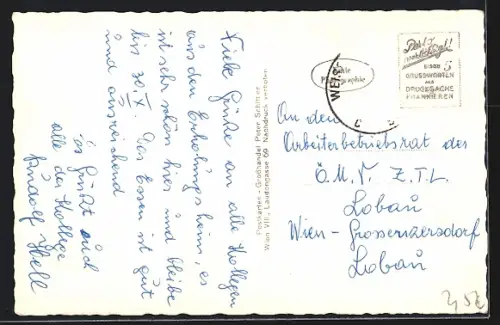 Viele Grüße an alle Kollegen
aus dem Erholungsheim, es
ist sehr schön hier und bleibe
bis 30.X. Das Essen ist gut
und ausreichend
es grüßt euch
alle der Kollege
Rudolf
Postkarten - Großhandel Peter Schillner
Wien VIII., Laudongasse 69 Nachdruck verboten
Echte
Photographie
WEYER
BEI
5
GRUSSWORTEN
ALS
DRUCKSACHE
FRANKIEREN
An den
Arbeiterbetriebsrat des
Ö.M.V. Z.T.L.
Lobau
Wien - Grossenzersdorf
Lobau